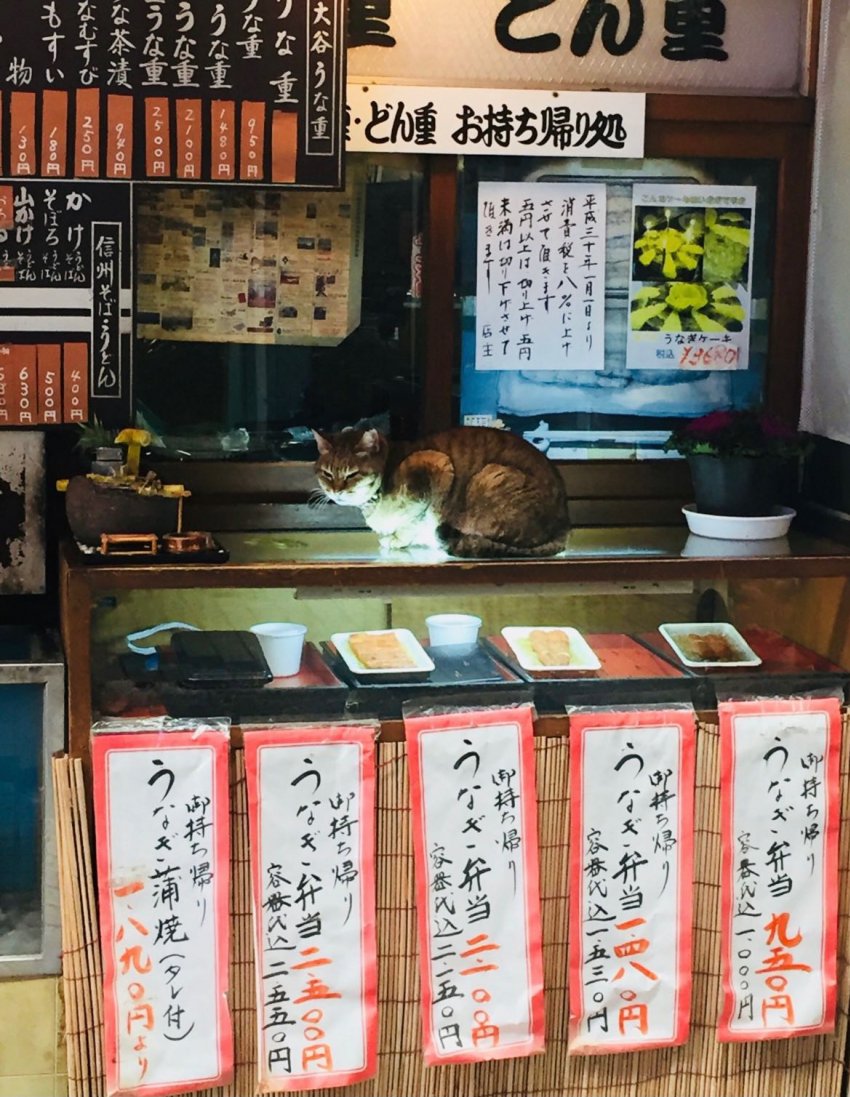 どん重
どん重 お持ち帰り処
大谷うな重
うな重
うな重
うな重
うな重
うな重
な茶漬
なむすび
もすい
物
950円
1480円
2100円
2500円
940円
250円
180円
130円
信州そば・うどん
かけ そば うどん
そぼろ そば うどん
山かけ そば うどん
400円
500円
630円
平成三十年一月一日より
消費税を八%に上げ
させて頂きます
五円以上は切り上げ五円
未満は切り下げさせて
頂きます
店主
うなぎケーキ
税込
御持ち帰り
うなぎ蒲焼(タレ付)
一、八九〇円より
御持ち帰り
うなぎ弁当 二、五〇〇円
容器代込 二、五五〇円
御持ち帰り
うなぎ弁当 二、一〇〇円
容器代込 二、一五〇円
御持ち帰り
うなぎ弁当 一、四八〇円
容器代込 一、五三〇円
御持ち帰り
うなぎ弁当 九五〇円
容器代込 一、〇〇〇円